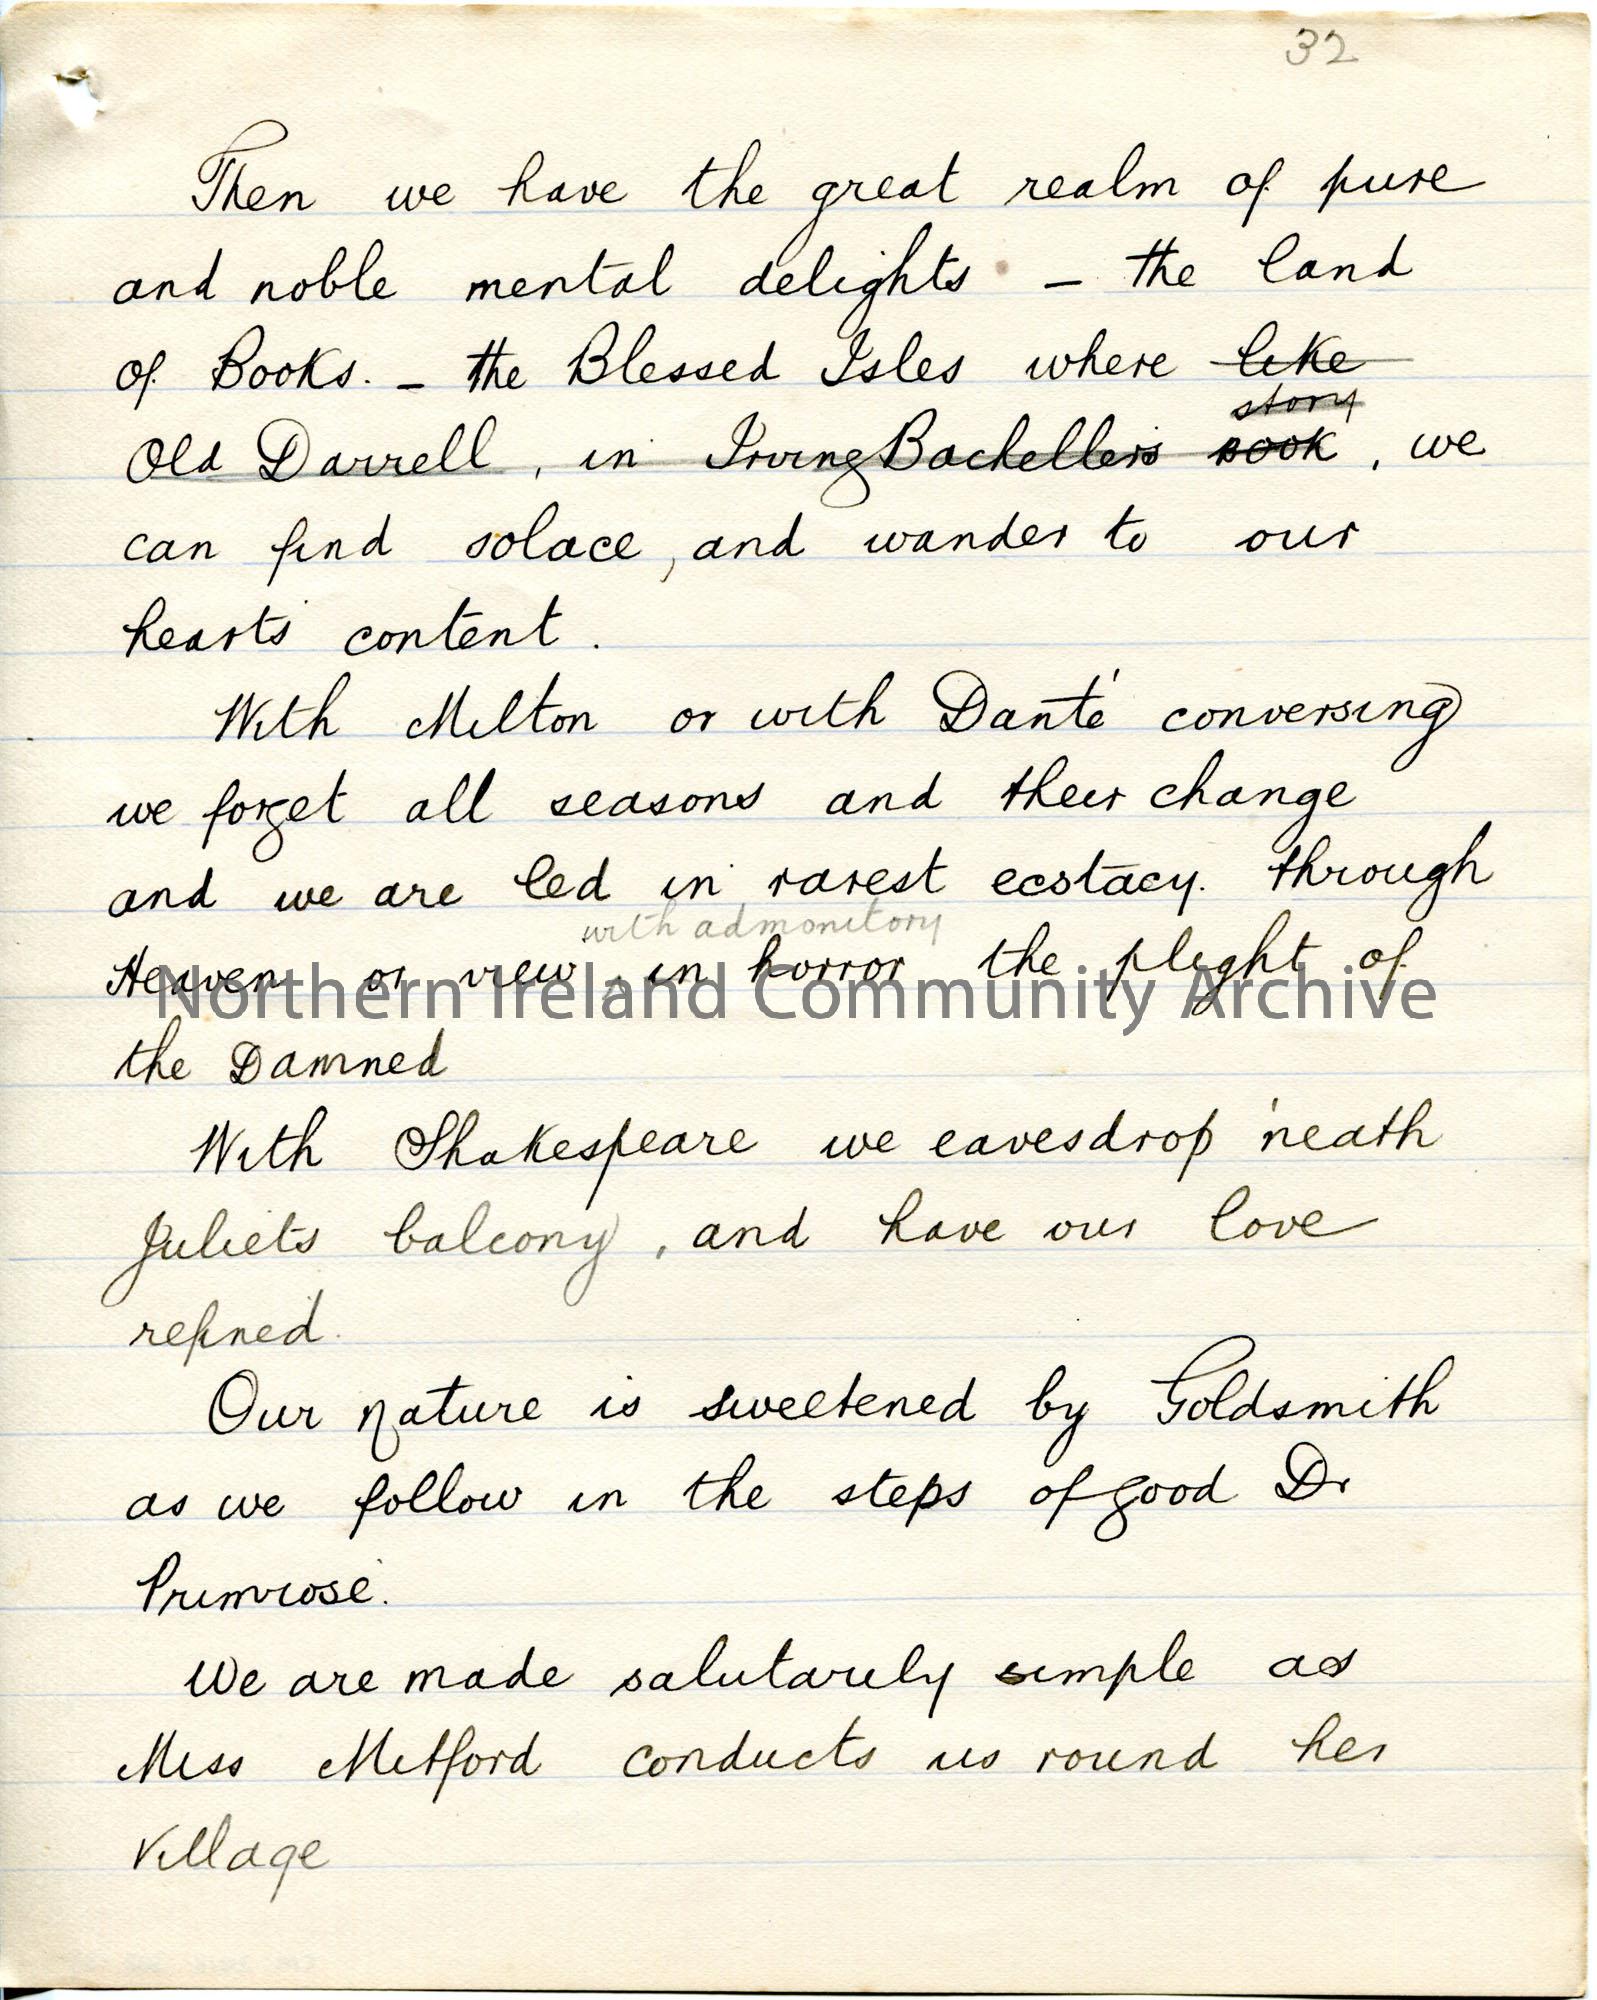 32
Then we have the great realm of pure
and noble mental delights – the land
of Books. – the Blessed Isles where like
story
Old Darrell, in Irving Bachellers book, we
can find solace, and wander to our
hearts content.
With Milton or with Danté conversing
we forget all seasons and their change
and we are led in rarest ecstacy. through
with admonitory
Heaven or view in horror the plight of
Northern Ireland Community Archive
the Damned
With Shakespeare we eavesdrop 'neath
Juliets balcony, and have our love
refined.
Our nature is sweetened by Goldsmith
as we follow in the steps of good Dr
Primrose.
We are made salutarily simple as
Miss Mitford conducts us round her
Village